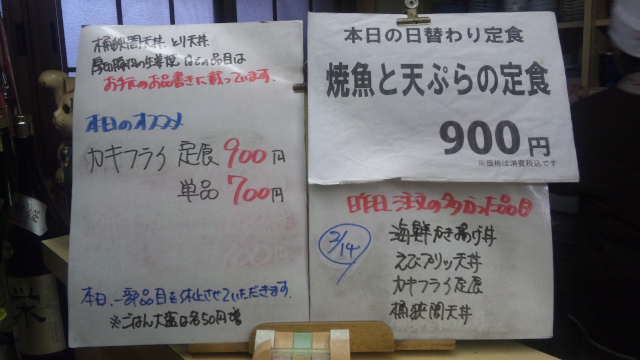 桶狭間天丼 とり天丼
などの品目は
お手元のお品書きに載っています.
本日のオススメ
カキフライ 定食 900円
単品 700円
本日、一部品目を休止させていただきます.
※ごはん大盛は各50円増
本日の日替わり定食
焼魚と天ぷらの定食
900円
※価格は消費税込です
昨日、注文の多かった品目
3/14
海鮮かき揚げ丼
えびプリッ天丼
カキフライ定食
桶狭間天丼